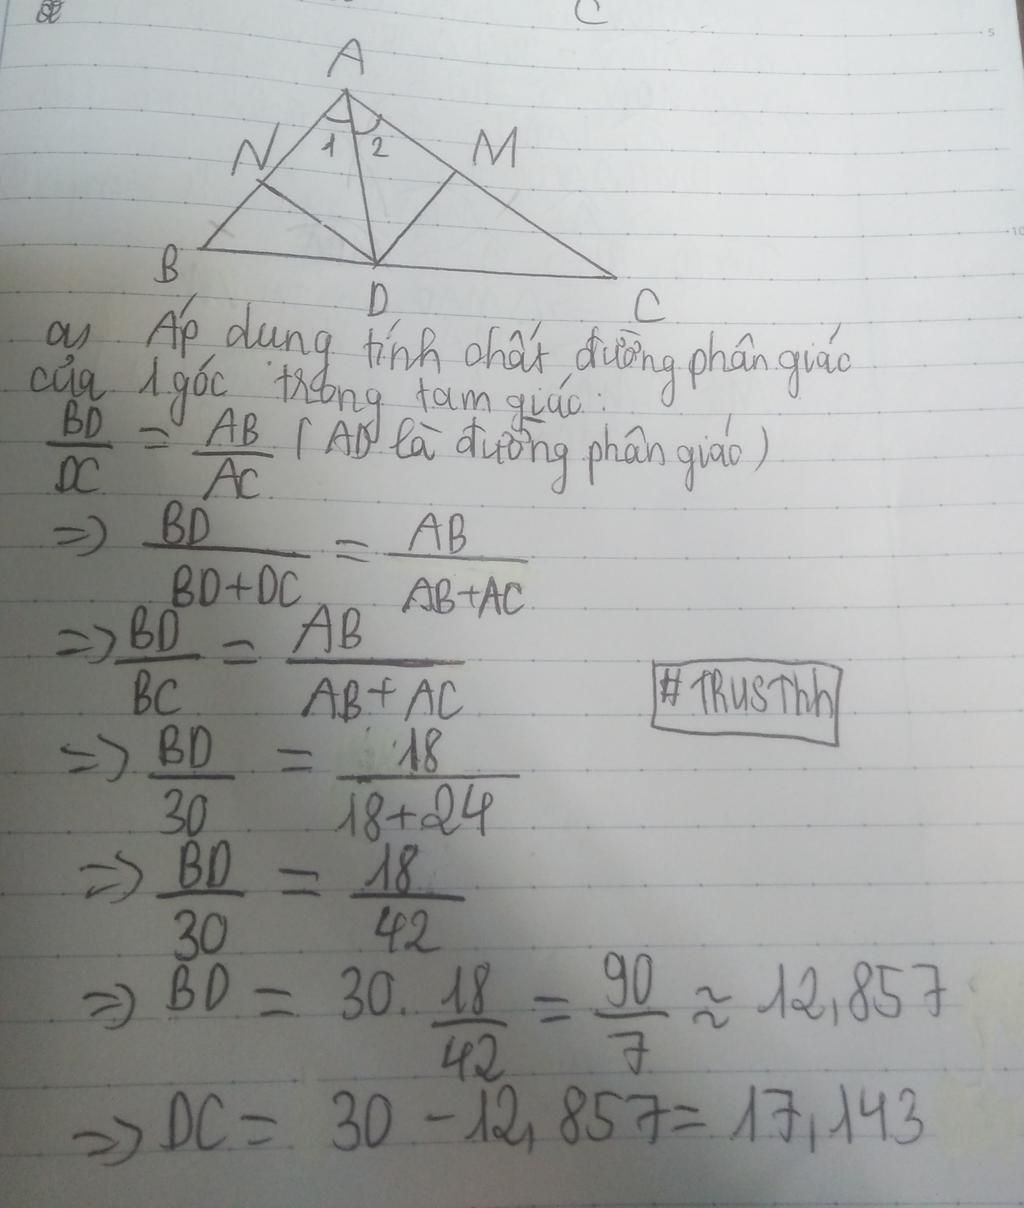 C
A
N 1 2 M
B D C
a, Áp dụng tính chất đường phân giác
của 1 góc trong tam giác:
BD/DC = AB/AC (AD là đường phân giác)
=> BD/BD+DC = AB/AB+AC
=> BD/BC = AB/AB+AC
#TRUSThh
=> BD/30 = 18/18+24
=> BD/30 = 18/42
=> BD = 30. 18/42 = 90/7 ≈ 12,857
=> DC = 30 - 12,857 = 17,143